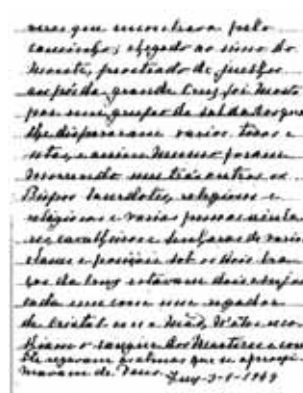 mas que encontrava pelo
caminho; chegado ao simo do
monte, prostrado de juelhos
aos pés da grande Cruz foi morto
por um grupo de soldados que
lhe dispararam varios tiros e
setas, e assim mesmo foram
morrendo uns trás outros os
Bispos Sacerdotes, religiosos e
religiosas e varias pessoas
cavalheiros e senhoras de varias
classes e posições sob os dois bra
ços da Cruz estavam dois Anjos
cada um com um regador
de cristal em a mão, n'eles reco
lhiam o sangue dos Martires e com
ele regavam as almas que se aproxi
mavam de Deus.
Tuy-3-1-1944